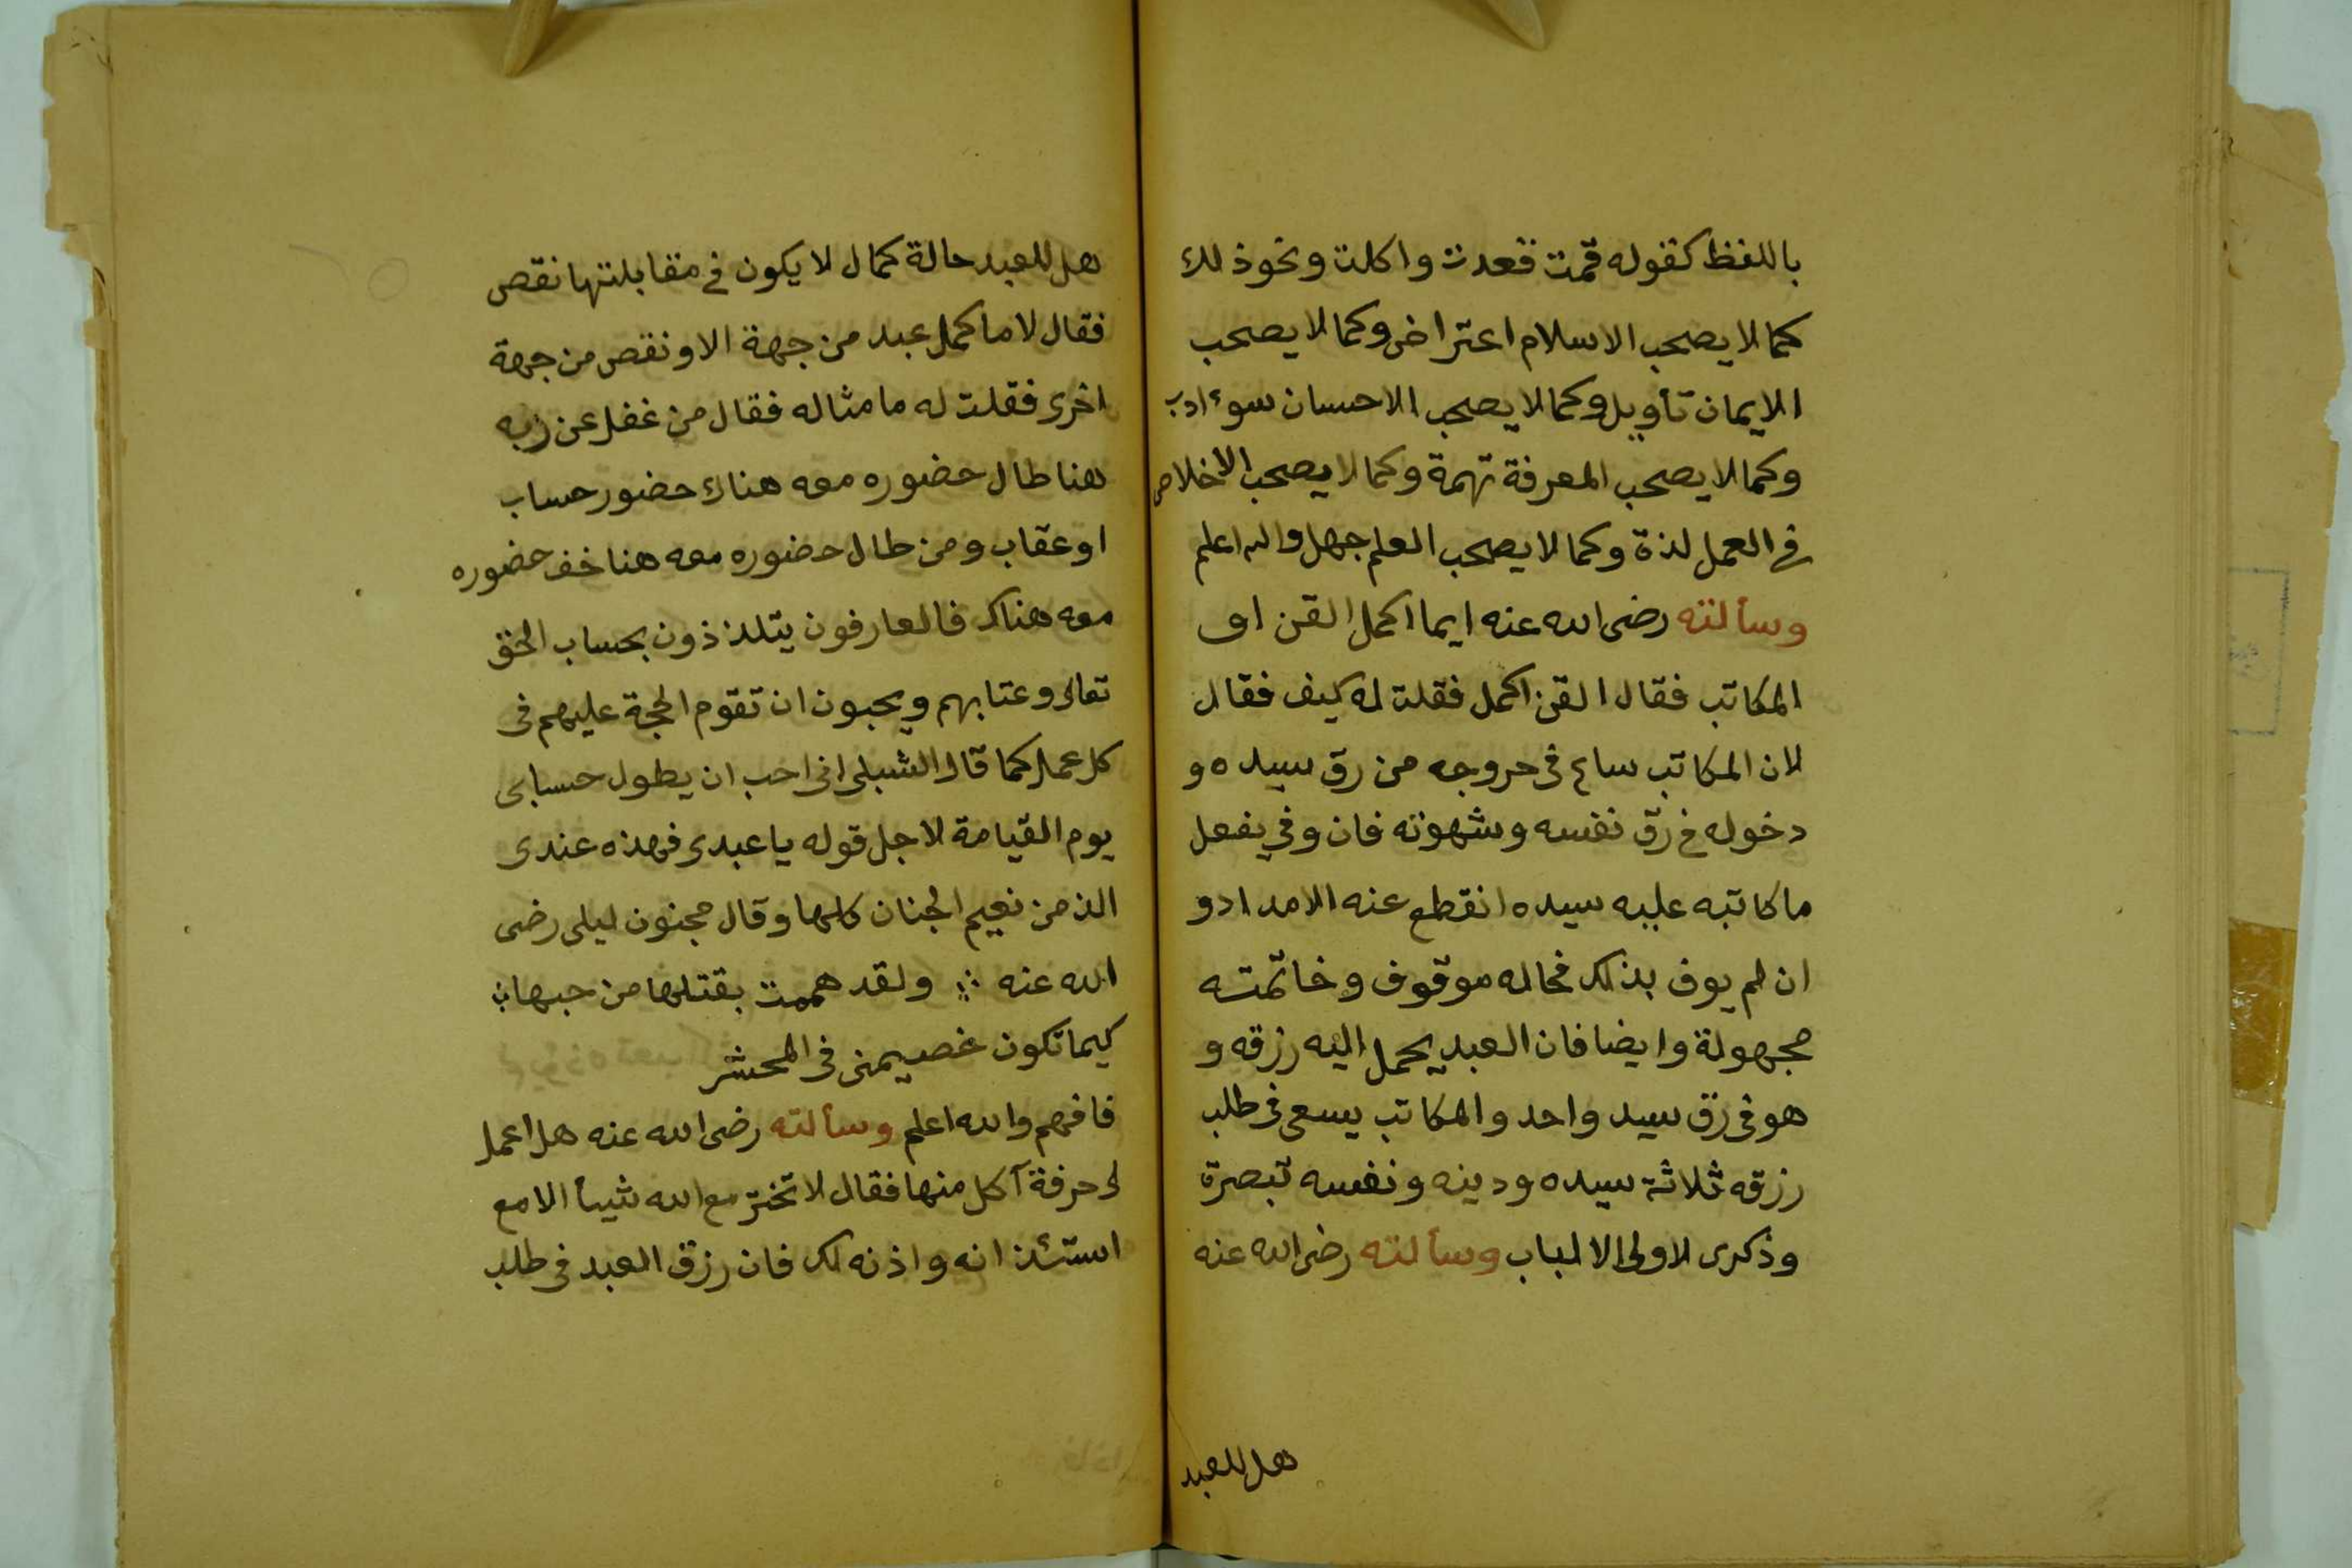 باللفظ كقوله قمت قعدت واكلت ونحوذلك
كما لا يصحب الاسلام اعتراض وكما لا يصحب
الايمان تأويل وكما لا يصحب الاحسان سوء ادب
وكما لا يصحب المعرفة تهمة وكما لا يصحب الاخلاص
فى العمل لذة وكما لا يصحب العلم جهل والله اعلم
وسألته رضى الله عنه ايما اكمل القن او
المكاتب فقال القن اكمل فقلت له كيف فقال
لان المكاتب ساع فى خروجه من رق سيده و
دخوله فى رق نفسه وشهوته فان وفى بفعل
ما كاتبه عليه سيده انقطع عنه الامداد و
ان لم يوف بذلك فحاله موقوف وخاتمته
مجهولة وايضا فان العبد يحمل اليه رزقه و
هو فى رق سيد واحد والمكاتب يسعى فى طلب
رزقه ثلاثة سيده ودينه ونفسه تبصرة
وذكرى لاولى الالباب وسألته رضى الله عنه
هل للعبد
هل للعبد حالة كمال لا يكون فى مقابلتها نقص
فقال لا ما كمل عبد من جهة الا ونقص من جهة
اخرى فقلت له ما مثاله فقال من غفل عن ربه
هنا طال حضوره معه هناك حضور حساب
او عقاب ومن طال حضوره معه هنا خف حضوره
معه هناك فالعارفون يتلذذون بحساب الحق
تعالى وعتابهم ويحبون ان تقوم الحجة عليهم فى
كل عمل كما قال الشبلى انى احب ان يطول حسابى
يوم القيامة لاجل قوله يا عبدى فهذه عندى
الذ من نعيم الجنان كلها وقال مجنون ليلى رضى
الله عنه ولقد هممت بقتلها من حبها
كيما تكون خصيمتى فى المحشر
فافهم والله اعلم وسألته رضى الله عنه هل اعمل
لى حرفة آكل منها فقال لا تختر مع الله شيأ الا مع
استئذانه واذنه لك فان رزق العبد فى طلب